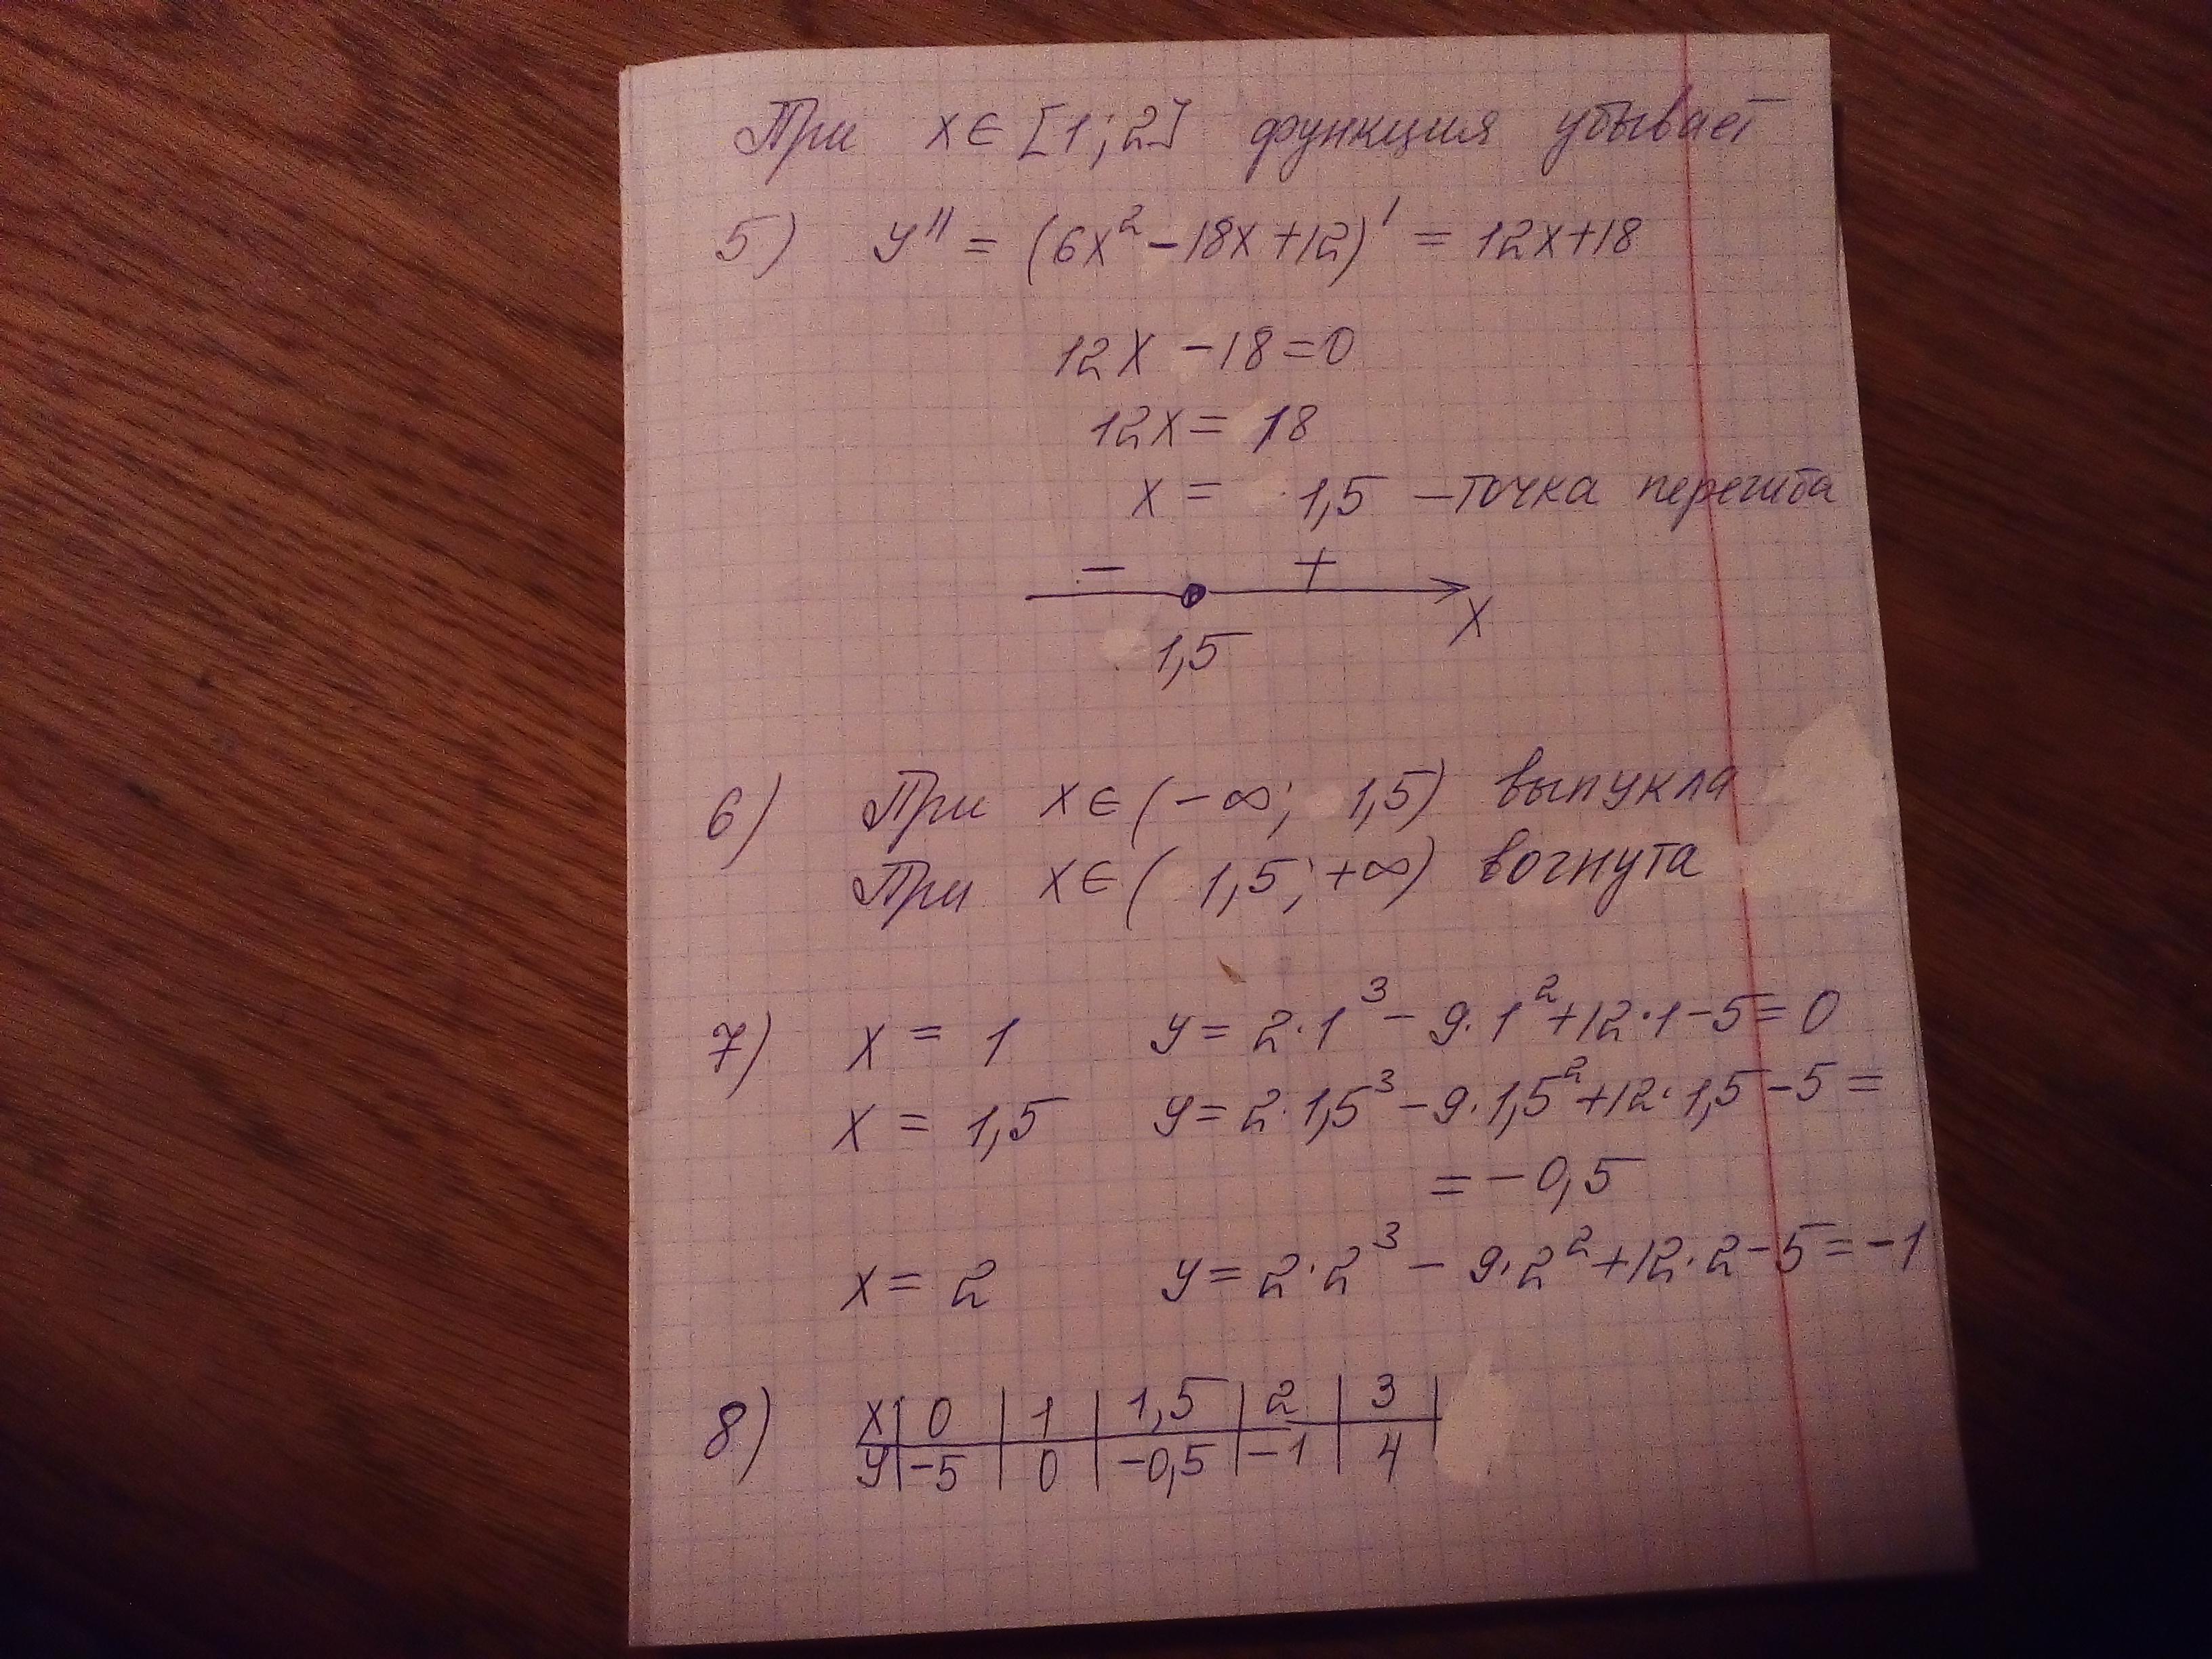 При x∈[1;2] функция убывает
5) y'' = (6x²-18x+12)' = 12x+18
12x-18=0
12x= 18
x= 1,5 – точка перегиба
- +
1,5 x
6) При x∈(-∞; 1,5) выпукла
При x∈( 1,5; +∞) вогнута
7) x = 1 y = 2·1³ - 9·1² + 12·1 - 5 = 0
x = 1,5 y = 2·1,5³ - 9·1,5² + 12·1,5 - 5 =
= -0,5
x = 2 y = 2·2³ - 9·2² + 12·2 - 5 = -1
8) x | 0 | 1 | 1,5 | 2 | 3 |
y | -5 | 0 | -0,5 | -1 | 4 |